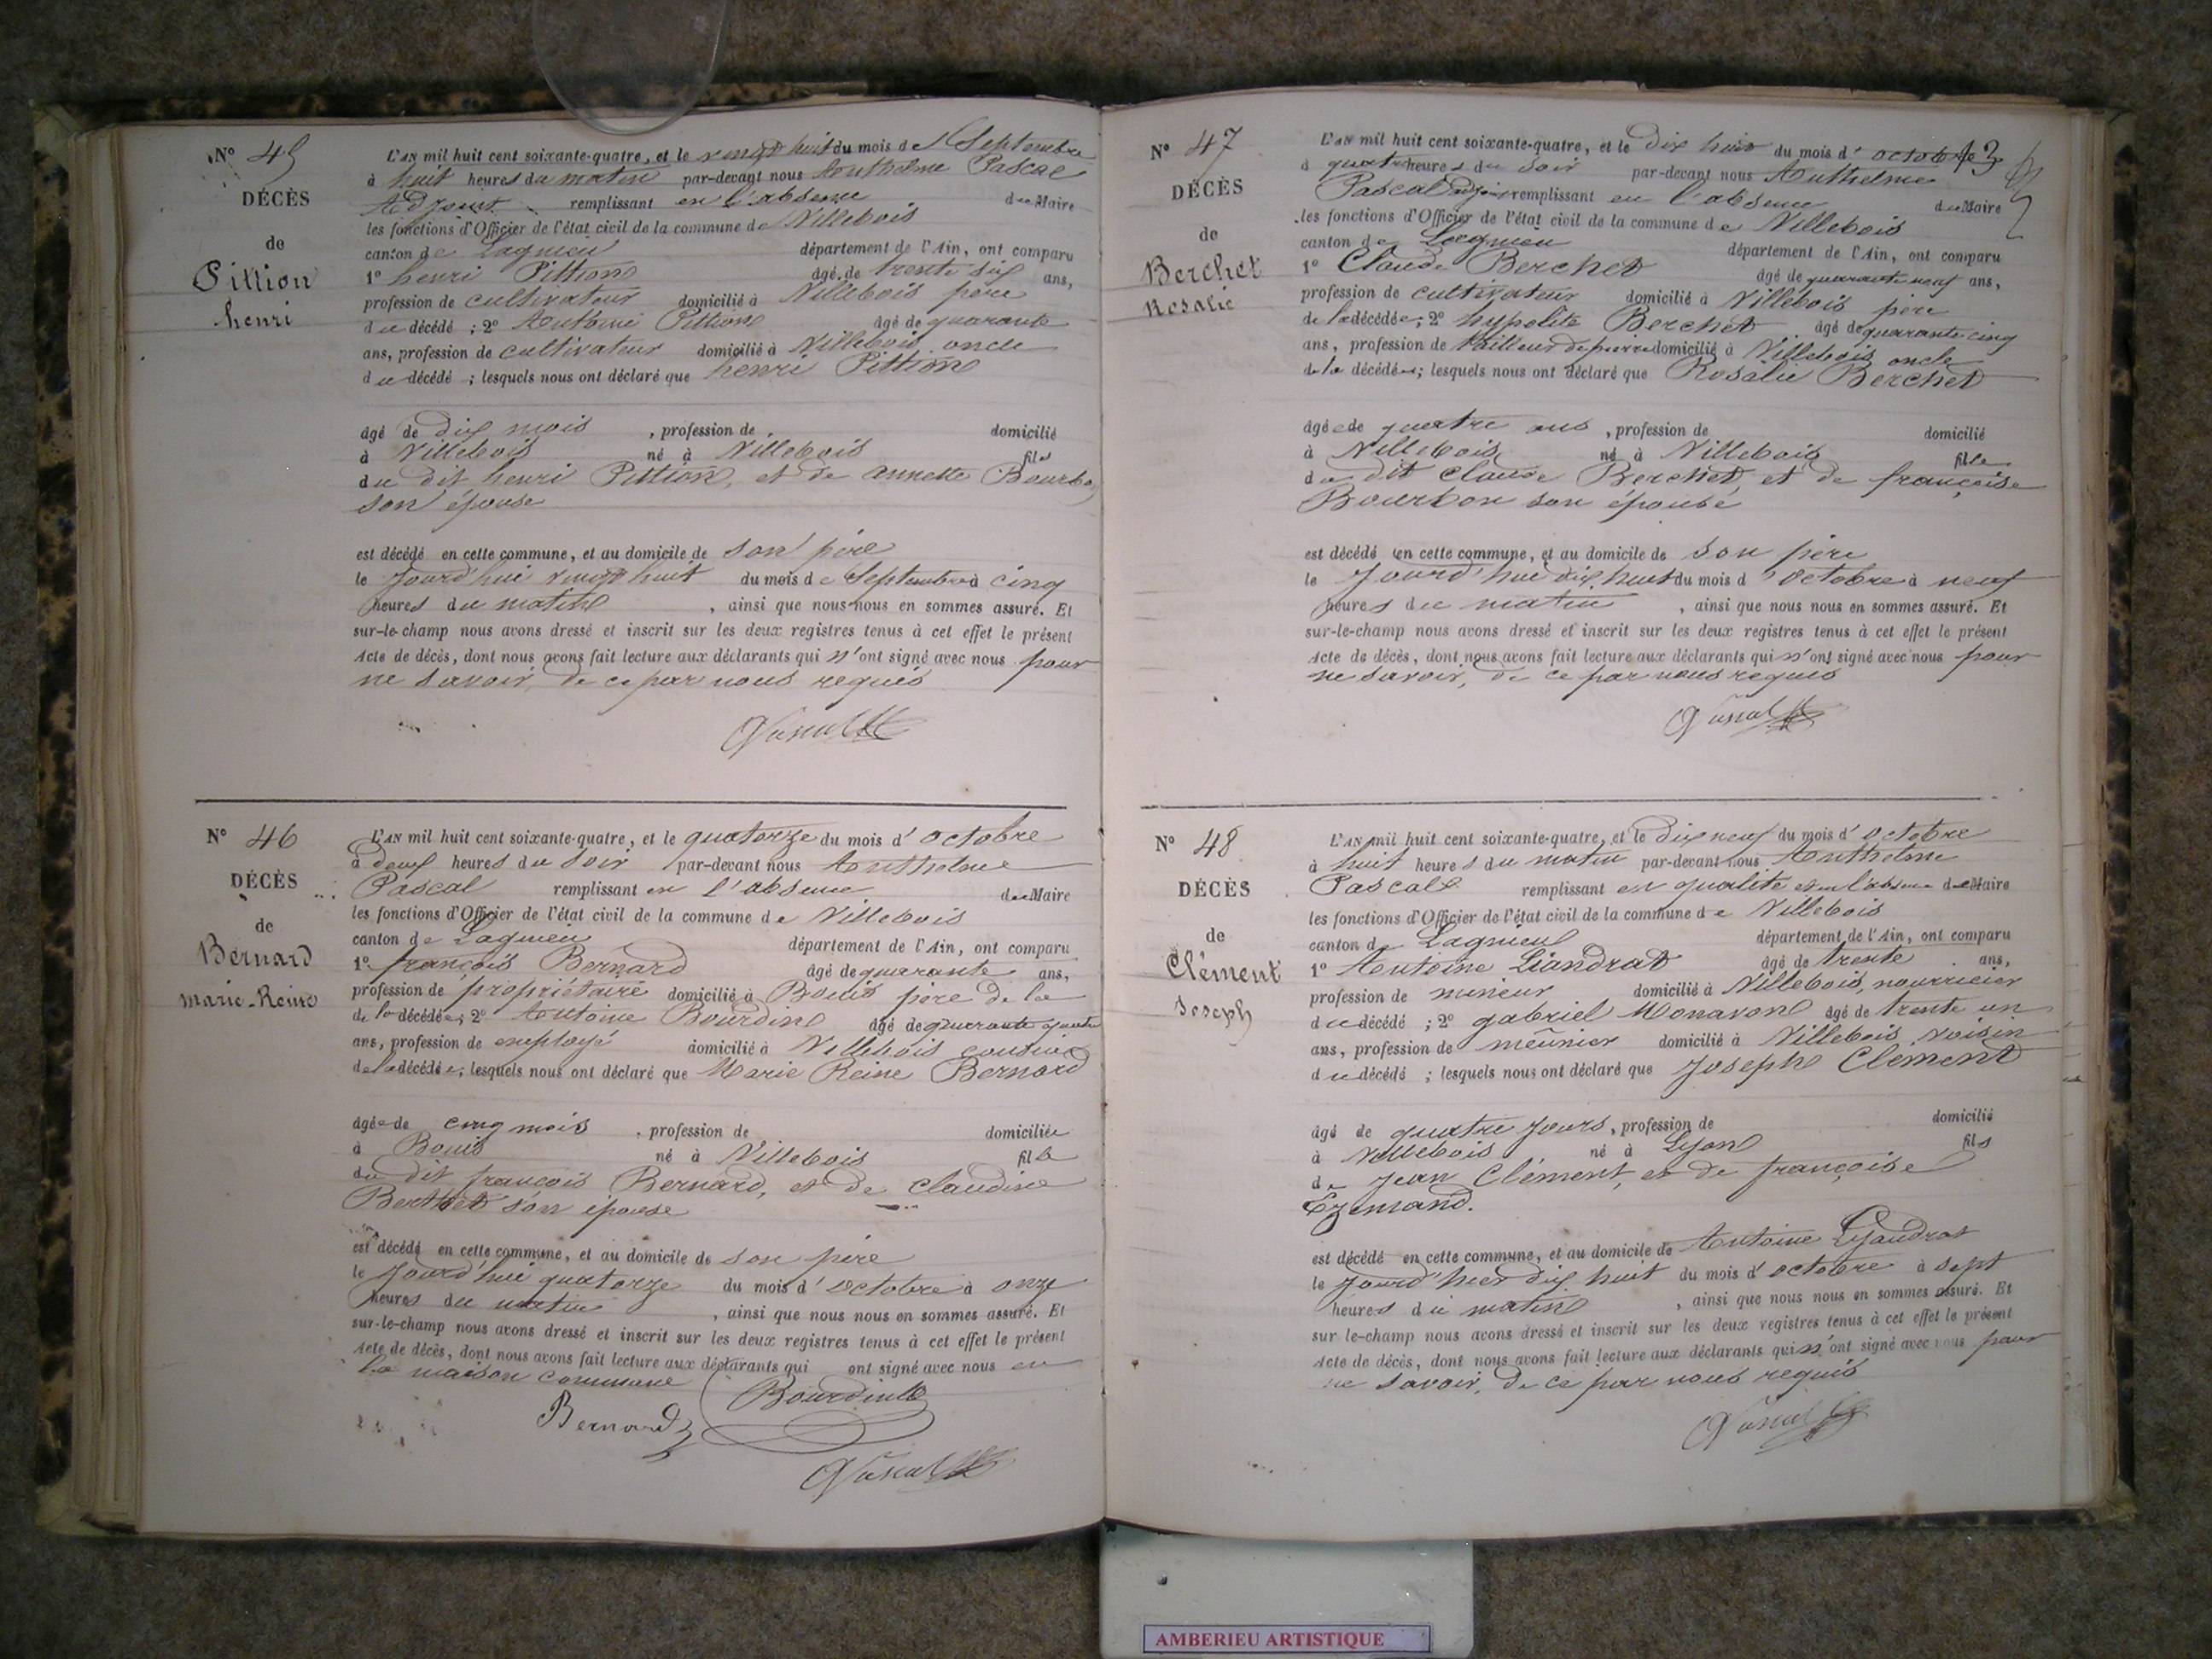 N° 45
DÉCÈS
de
Pittion
henri
L'AN mil huit cent soixante-quatre, et le vingt huit du mois de Septembre
à huit heures du matin par-devant nous Anthelme Pascal
Adjoint remplissant en l'absence du Maire
les fonctions d'Officier de l'état civil de la commune de Villebois
canton de Lagnieu département de l'Ain, ont comparu
1° henri Pittion âgé de trente six ans,
profession de cultivateur domicilié à Villebois père
du décédé ; 2° Antoine Pittion âgé de quarante
ans, profession de cultivateur domicilié à Villebois oncle
du décédé ; lesquels nous ont déclaré que henri Pittion
âgé de dix mois , profession de domicilié
à Villebois né à Villebois fils
du dit henri Pittion, et de annette Bourbon
son épouse
est décédé en cette commune, et au domicile de son père
le jourd'hui vingt huit du mois de Septembre à cinq
heures du matin , ainsi que nous nous en sommes assuré. Et
sur-le-champ nous avons dressé et inscrit sur les deux registres tenus à cet effet le présent
Acte de décès, dont nous avons fait lecture aux déclarants qui n'ont signé avec nous pour
ne savoir, de ce par nous requis
Pascal
N° 46
DÉCÈS
de
Bernard
marie-Reine
L'AN mil huit cent soixante-quatre, et le quatorze du mois d'octobre
à deux heures du soir par-devant nous Anthelme
Pascal remplissant en l'absence du Maire
les fonctions d'Officier de l'état civil de la commune de Villebois
canton de Lagnieu département de l'Ain, ont comparu
1° françois Bernard âgé de quarante ans,
profession de propriétaire domicilié à Bouis père de la
de la décédée ; 2° Antoine Bourdin âgé de quarante quatre
ans, profession de employé domicilié à Villebois cousin
de la décédée ; lesquels nous ont déclaré que Marie Reine Bernard
âgée de cinq mois , profession de domiciliée
à Bouis né à Villebois fille
du dit françois Bernard, et de claudine
Berthet son épouse
est décédé en cette commune, et au domicile de son père
le jourd'hui quatorze du mois d'octobre à onze
heures du matin , ainsi que nous nous en sommes assuré. Et
sur-le-champ nous avons dressé et inscrit sur les deux registres tenus à cet effet le présent
Acte de décès, dont nous avons fait lecture aux déclarants qui ont signé avec nous en
la maison commune
Bourdin
Bernard
Pascal
N° 47
DÉCÈS
de
Berchet
Rosalie
L'AN mil huit cent soixante-quatre, et le dix huit du mois d'octobre 13
à quatre heures du soir par-devant nous Anthelme
Pascal adjoint remplissant en l'absence du Maire
les fonctions d'Officier de l'état civil de la commune de Villebois
canton de Lagnieu département de l'Ain, ont comparu
1° Claude Berchet âgé de quarante neuf ans,
profession de cultivateur domicilié à Villebois père
de la décédée ; 2° hypolite Berchet âgé de quarante cinq
ans, profession de tailleur de pierre domicilié à Villebois oncle
de la décédée ; lesquels nous ont déclaré que Rosalie Berchet
âgée de quatre ans , profession de domicilié
à Villebois né à Villebois fille
du dit claude Berchet, et de françoise
Bourbon son épouse
est décédé en cette commune, et au domicile de son père
le jourd'hui dix huit du mois d'octobre à neuf
heures du matin , ainsi que nous nous en sommes assuré. Et
sur-le-champ nous avons dressé et inscrit sur les deux registres tenus à cet effet le présent
Acte de décès, dont nous avons fait lecture aux déclarants qui n'ont signé avec nous pour
ne savoir, de ce par nous requis
Pascal
N° 48
DÉCÈS
de
Clément
Joseph
L'AN mil huit cent soixante-quatre, et le dix neuf du mois d'octobre
à huit heures du matin par-devant nous Anthelme
Pascal remplissant en qualité et en l'absence du Maire
les fonctions d'Officier de l'état civil de la commune de Villebois
canton de Lagnieu département de l'Ain, ont comparu
1° Antoine Liandrat âgé de trente ans,
profession de mineur domicilié à Villebois, nourricier
du décédé ; 2° gabriel Monavon âgé de trente un
ans, profession de meûnier domicilié à Villebois voisin
du décédé ; lesquels nous ont déclaré que Joseph Clement
âgé de quatre jours , profession de domicilié
à Villebois né à Lyon fils
de Jean Clément, et de françoise
Ezemand.
est décédé en cette commune, et au domicile de Antoine Lyandrat
le jourd'hier dix huit du mois d'octobre à sept
heures du matin , ainsi que nous nous en sommes assuré. Et
sur le-champ nous avons dressé et inscrit sur les deux registres tenus à cet effet le présent
Acte de décès, dont nous avons fait lecture aux déclarants qui n'ont signé avec nous pour
ne savoir, de ce par nous requis
Pascal
AMBERIEU ARTISTIQUE